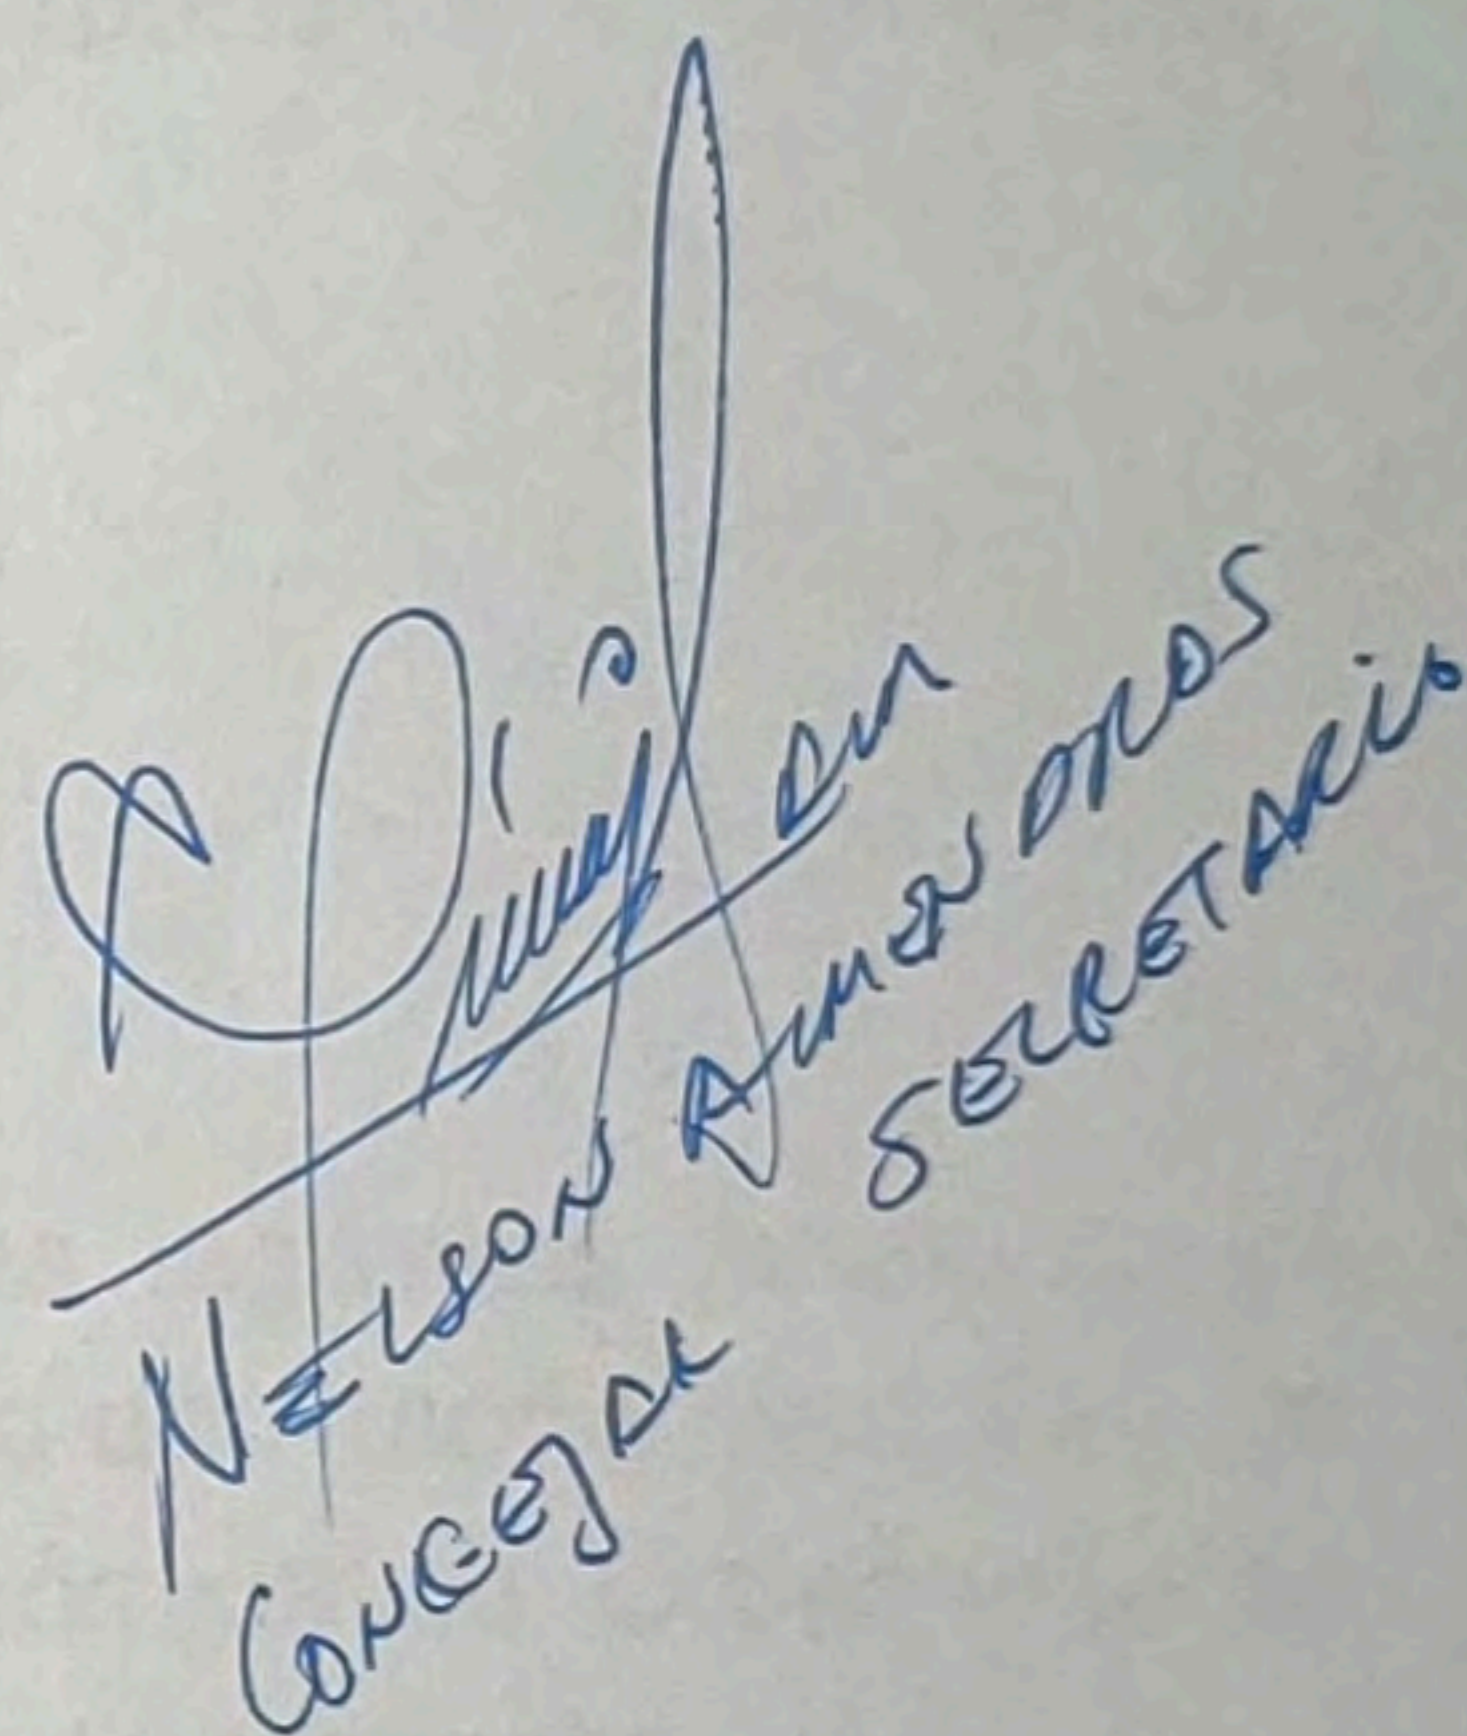 NELSON ALMENDROS
CONCEJAL SECRETARIO